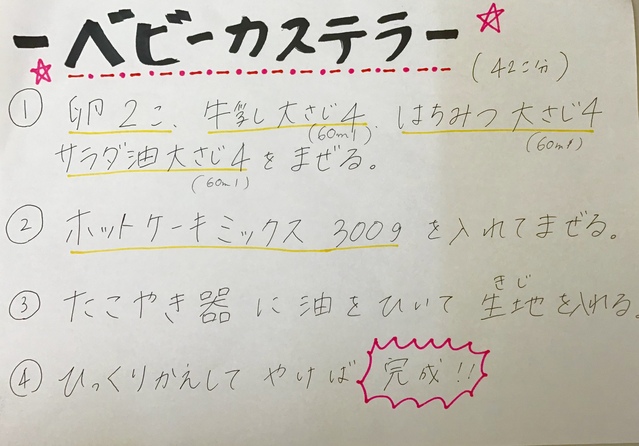 ーベビーカステラー
(42こ分)
① 卵2こ、牛乳大さじ4 はちみつ大さじ4
(60ml) (60ml)
サラダ油大さじ4をまぜる。
(60ml)
② ホットケーキミックス 300gを入れてまぜる。
きじ
③ たこやき器に油をひいて生地を入れる。
④ ひっくりかえしてやけば 完成!!